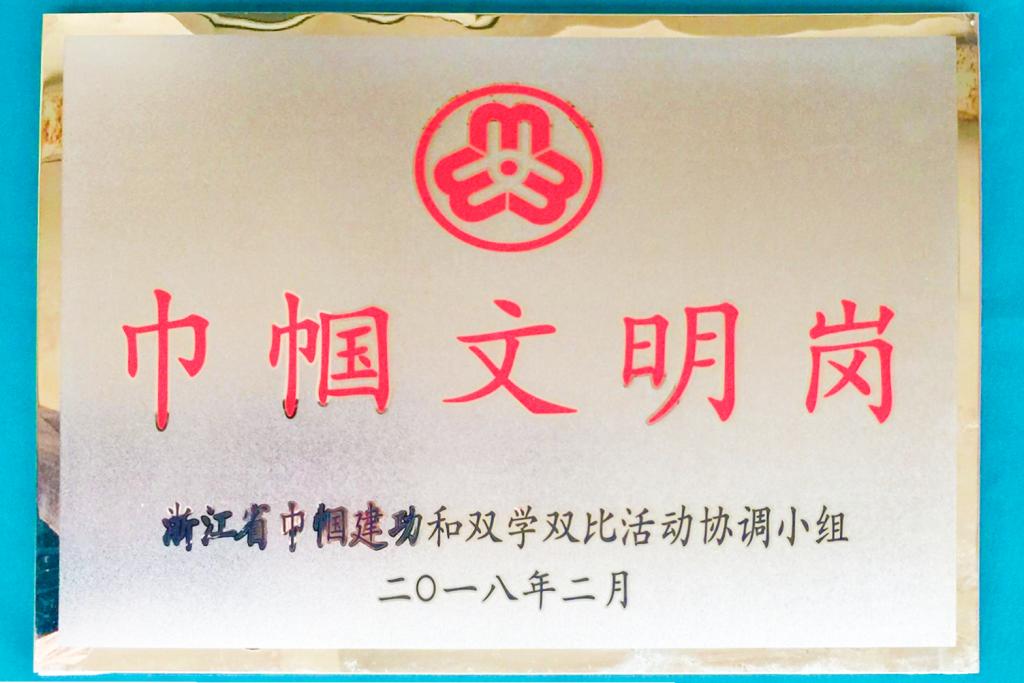 巾帼文明岗
浙江省巾帼建功和双学双比活动协调小组
二〇一八年二月